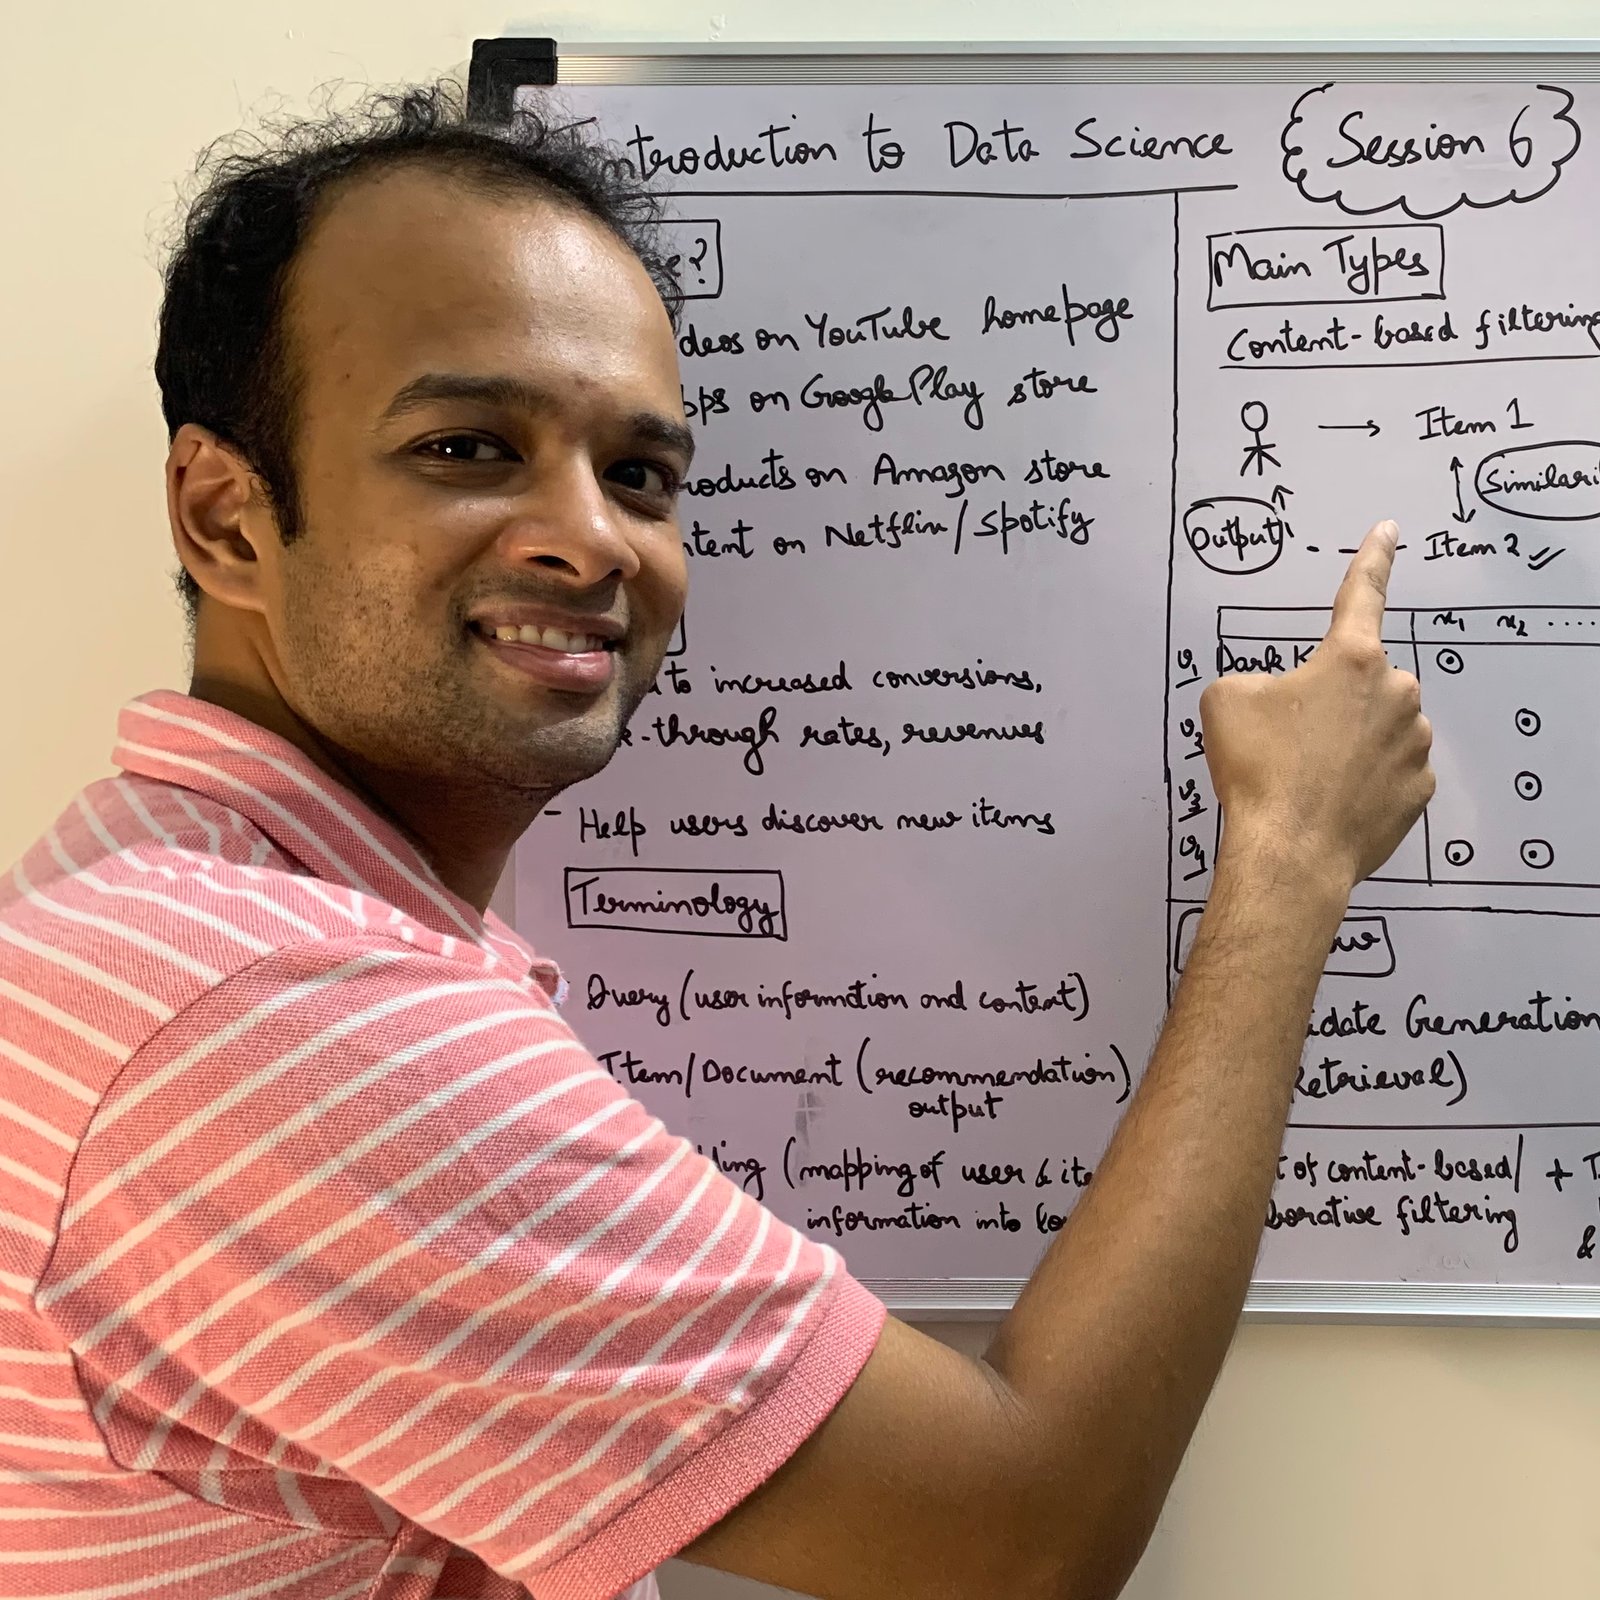 Introduction to Data Science
Session 6
?
deos on YouTube homepage
pps on Google Play store
roducts on Amazon store
ntent on Netflix/Spotify
to increased conversions,
-through rates, revenues
- Help users discover new items
Terminology
Query (user information and context)
Item/Document (recommendation)
output
(mapping of user & ite
information into lo
Main Types
Content-based filtering
Item 1
Similari
Output
Item 2
x1 x2 ....
v1 Dark K
v2
v3
v4
idate Generation
Retrieval)
t of content-based/ + T
borative filtering
&